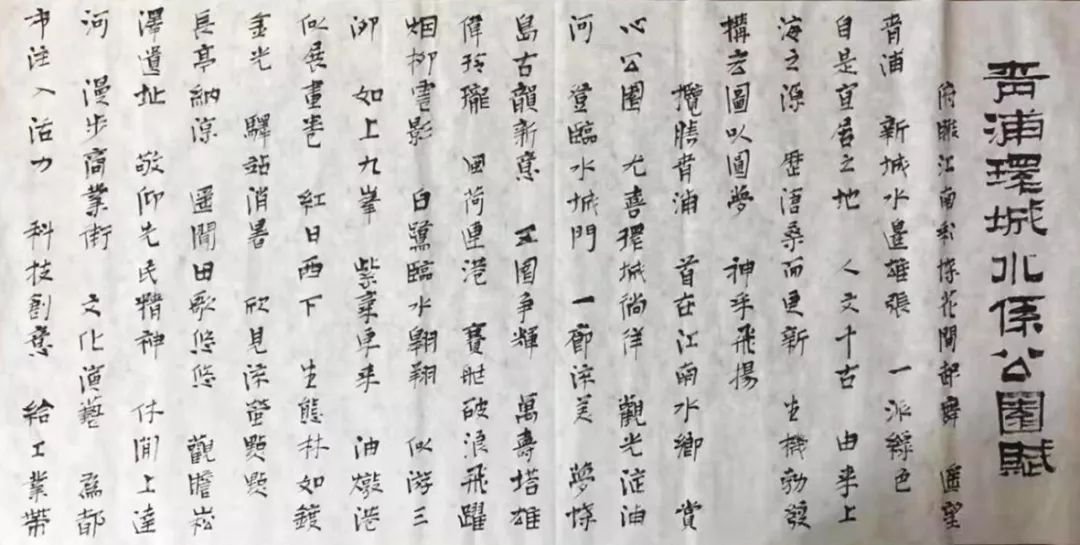 青浦環城水系公園賦
俯瞰江南彩蝶花間起舞 遥望
青浦 新城水邊雄張 一派綠色
自是宜居之地 人文千古 由來上
海之源 歷滄桑而更新 生機勃發
構宏圖以圆夢 神乎飛揚
攬勝青浦 首在江南水鄉 賞
心公園 尤喜環城徜徉 觀光淀浦
河 登臨水城門 一廊淙美 夢蝶
島古韻新意 五園争輝 萬壽塔雄
偉玲瓏 風荷連港 賽艇破浪飛躍
烟柳雲影 白鷺臨水翱翔 似游三
泖 如上九峯 紫氣東来 油墩港
似展畫卷 紅日西下 生態林如鍍
金光 驛站消暑 欣見流螢點點
長亭納凉 遥聞田歌悠悠 觀瞻崧
澤遺址 敬仰先民精神 休閒上達
河 漫步商業街 文化演藝 爲都
市注入活力 科技創意 給工業帶